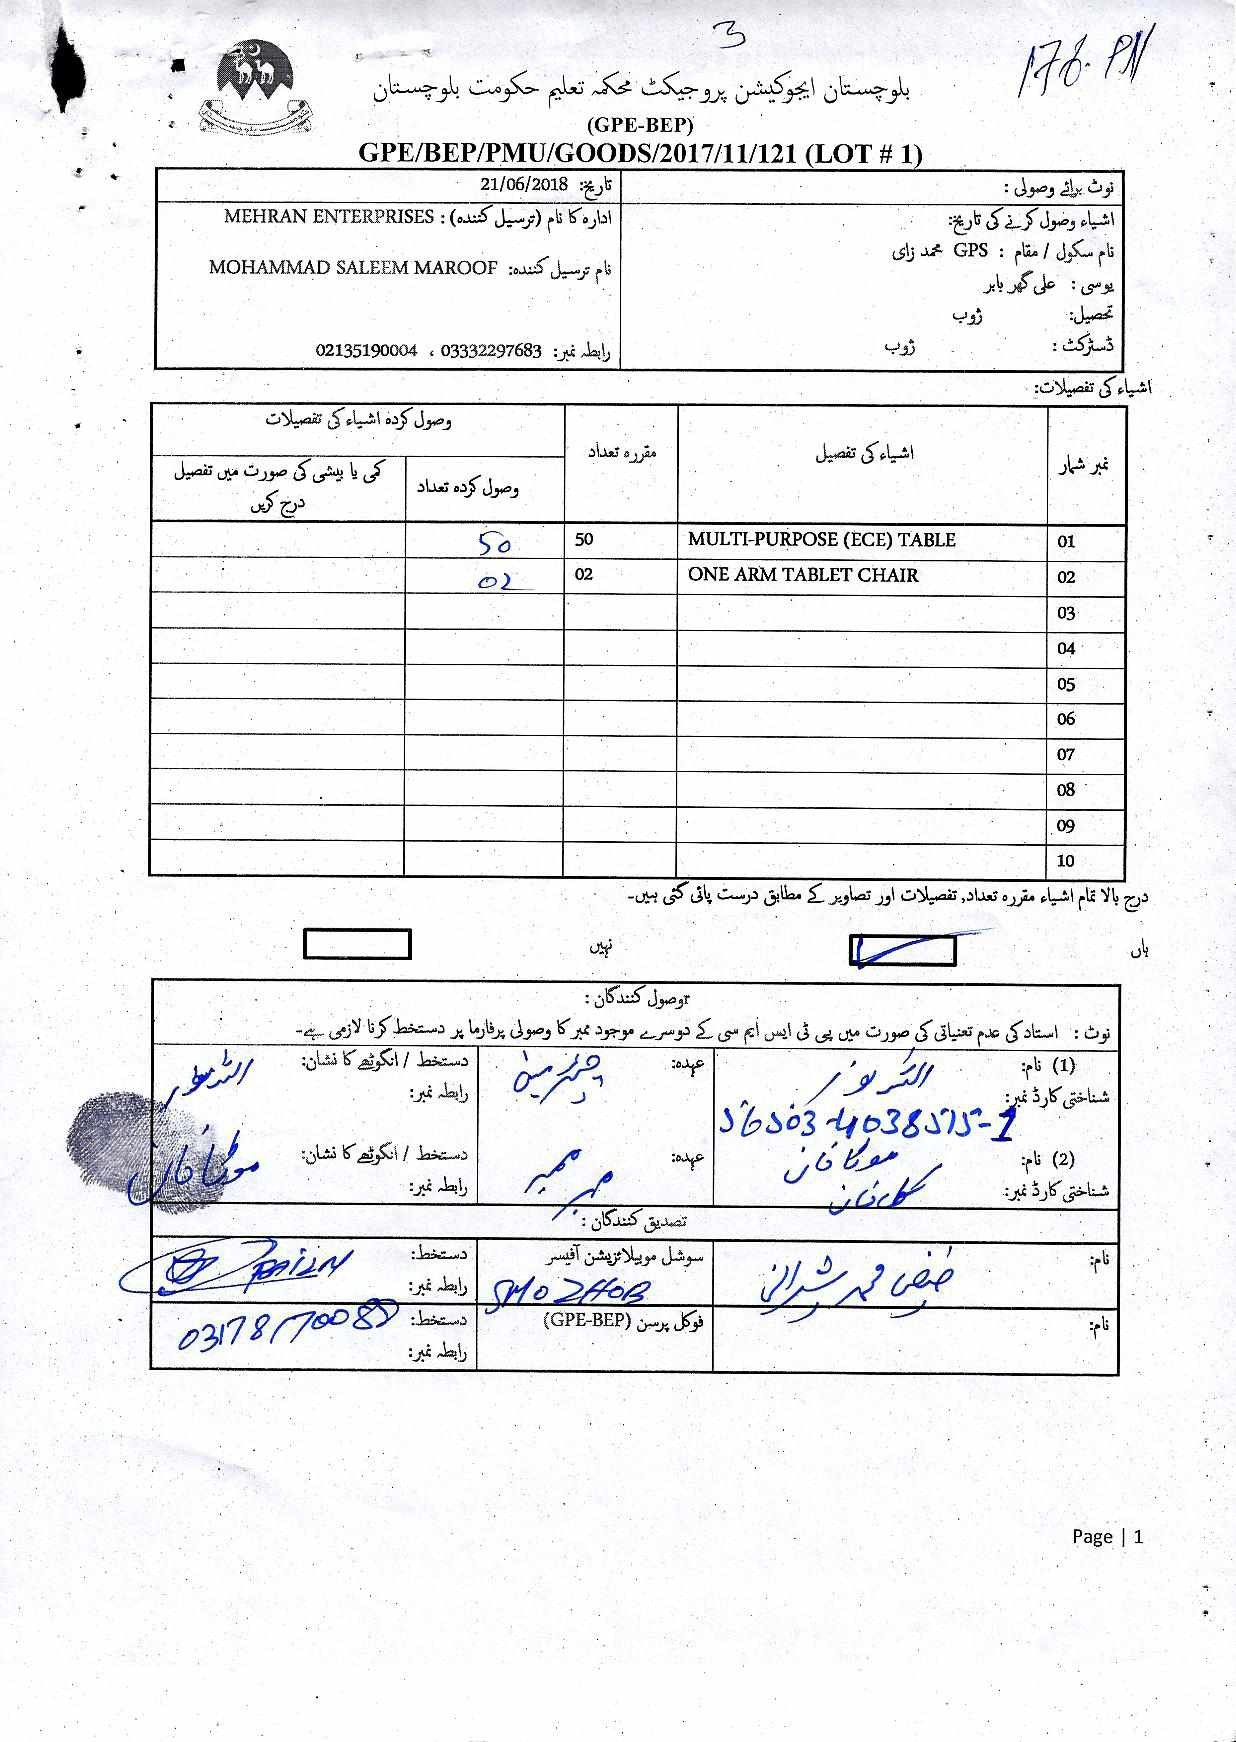 3
178. PN
بلوچستان ایجوکیشن پروجیکٹ محکمہ تعلیم حکومت بلوچستان
(GPE-BEP)
GPE/BEP/PMU/GOODS/2017/11/121 (LOT # 1)
نوٹ برائے وصولی :
تاریخ: 21/06/2018
اشیاء وصول کرنے کی تاریخ:
نام سکول / مقام : GPS محمد زای
یوسی : علی گھر بابر
تحصیل: ژوب
ڈسٹرکٹ : ژوب
ادارہ کا نام (ترسیل کنندہ) : MEHRAN ENTERPRISES
نام ترسیل کنندہ: MOHAMMAD SALEEM MAROOF
رابطہ نمبر: 03332297683 ، 02135190004
اشیاء کی تفصیلات:
نمبر شمار اشیاء کی تفصیل مقررہ تعداد وصول کردہ اشیاء کی تفصیلات
وصول کردہ تعداد کمی یا بیشی کی صورت میں تفصیل درج کریں
01 MULTI-PURPOSE (ECE) TABLE 50 50
02 ONE ARM TABLET CHAIR 02 02
03
04
05
06
07
08
09
10
درج بالا تمام اشیاء مقررہ تعداد, تفصیلات اور تصاویر کے مطابق درست پائی گئی ہیں۔
ہاں نہیں
وصول کنندگان :
نوٹ : استاد کی عدم تعنیاتی کی صورت میں پی ٹی ایس ایم سی کے دوسرے موجود ممبر کا وصولی پرفارما پر دستخط کرنا لازمی ہے۔
(1) نام: عہدہ: چیئرمین دستخط / انگوٹھے کا نشان:
شناختی کارڈ نمبر: 56503-4038575-1 رابطہ نمبر:
(2) نام: عہدہ: ممبر دستخط / انگوٹھے کا نشان:
شناختی کارڈ نمبر: رابطہ نمبر:
تصدیق کنندگان :
نام: سوشل موبیلائزیشن آفیسر دستخط:
SMO ZHOB رابطہ نمبر:
نام: فوکل پرسن (GPE-BEP) دستخط:
رابطہ نمبر:
Page | 1